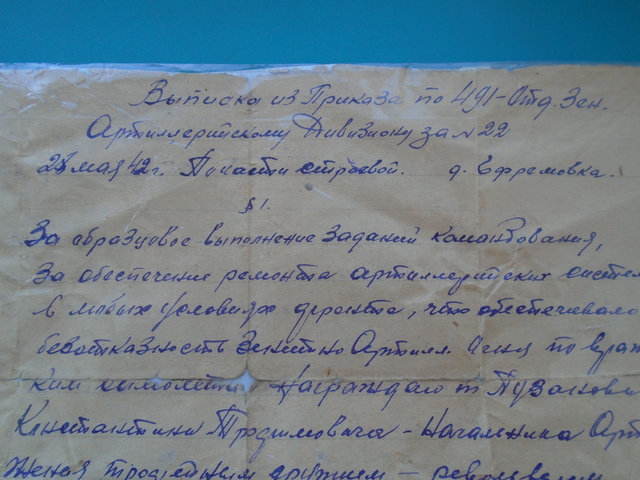 Выписка из Приказа по 491-Отд. Зен.
Артиллерийскому Дивизиону за № 22
мая 42 г. По части строевой. д. Ефремовка.
§ 1.
За образцовое выполнение заданий командования,
за обеспечение ремонта артиллерийских систем
в любых условиях фронта, что обеспечивало
безотказность Зенитно Артилл. Огня по враж
ким самолетам Награждаю т. Пузанова
Константина Трофимовича - Начальника Арт
жения трофейным оружием - револьвером